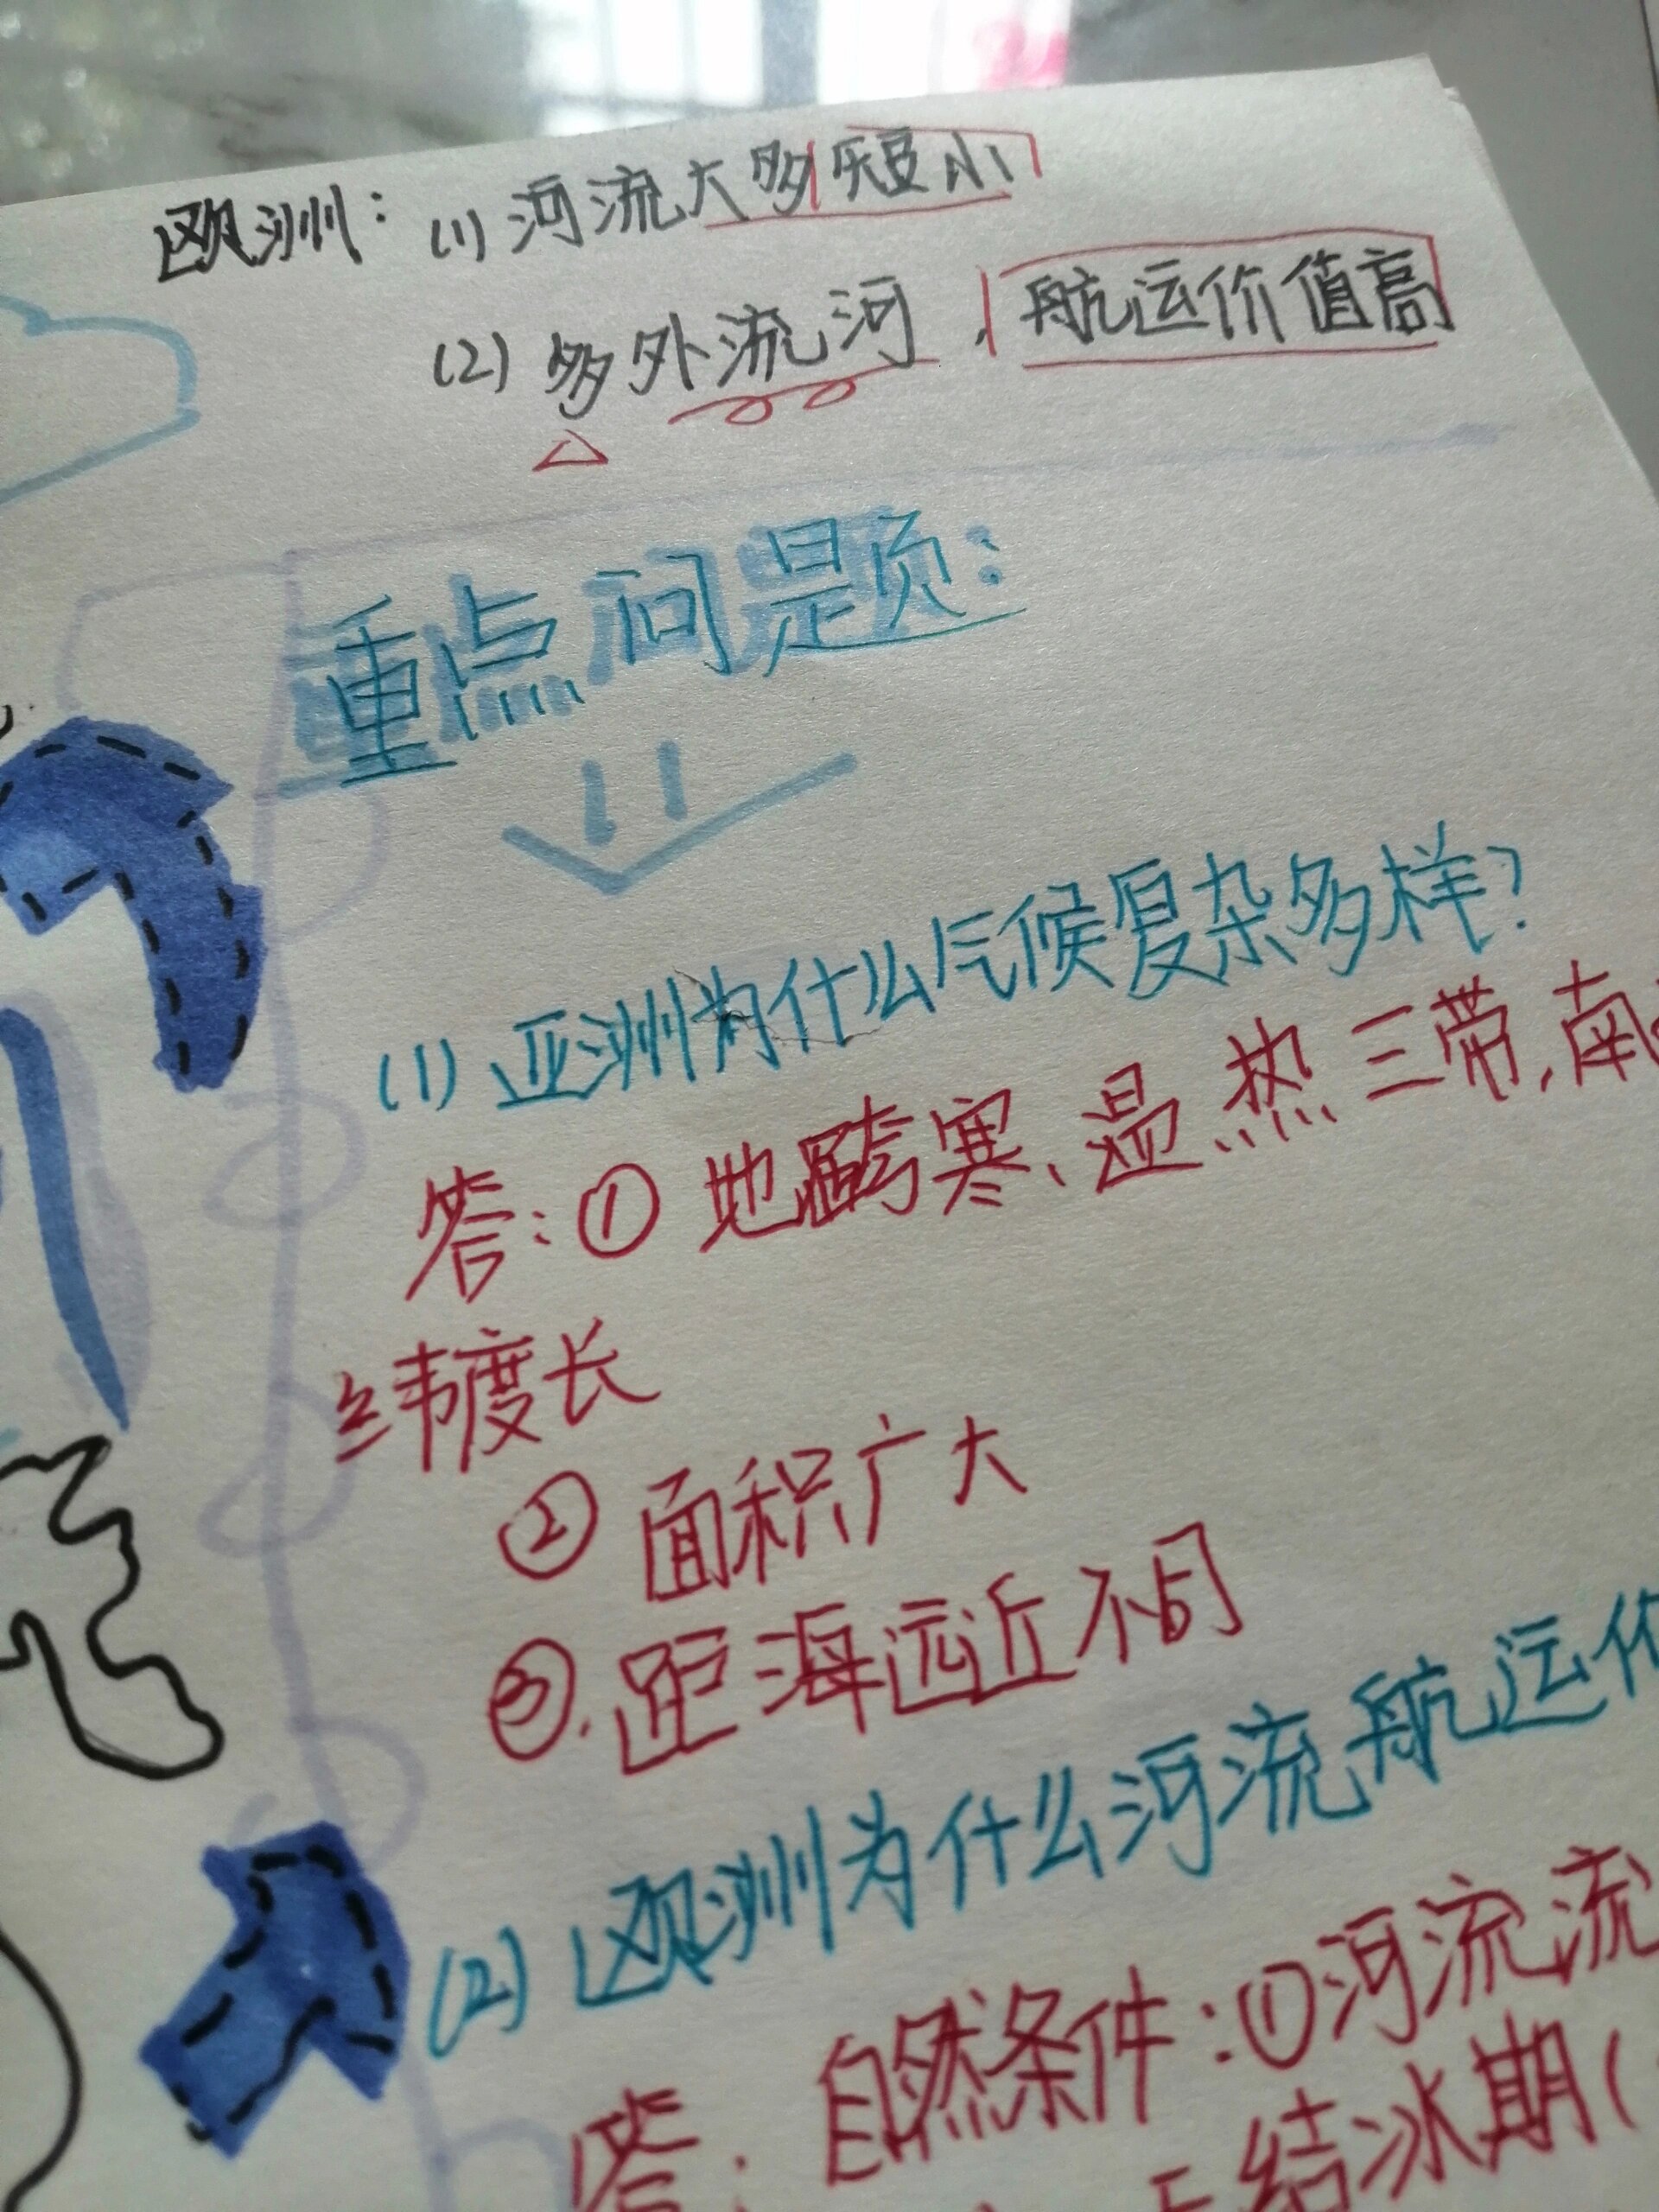 欧洲：(1) 河流大多短小
(2) 多外流河，航运价值高
重点问题：
(1) 亚洲为什么气候复杂多样？
答：① 地跨寒、温、热三带，南
纬度长
② 面积广大
③. 距海远近不同
(2) 欧洲为什么河流航运价
答：自然条件：①河流流
结冰期(